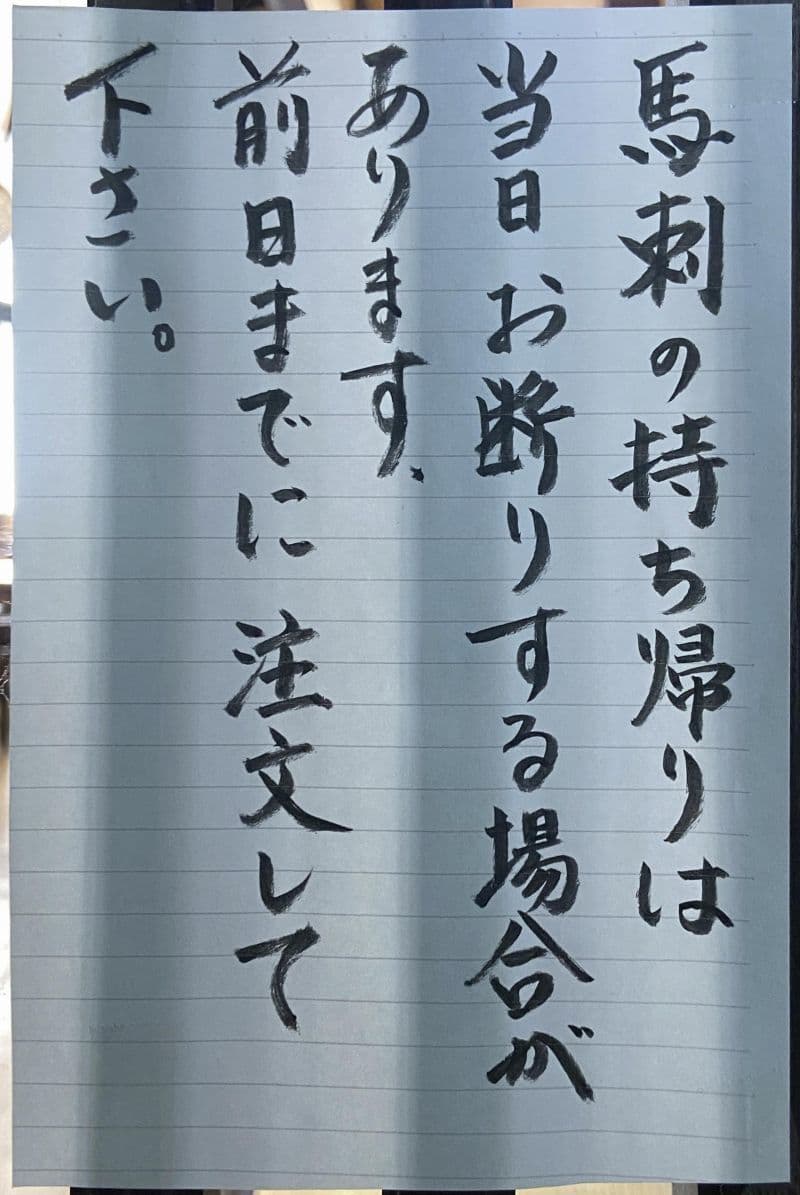 馬刺の持ち帰りは
当日お断りする場合が
あります、
前日までに注文して
下さい。